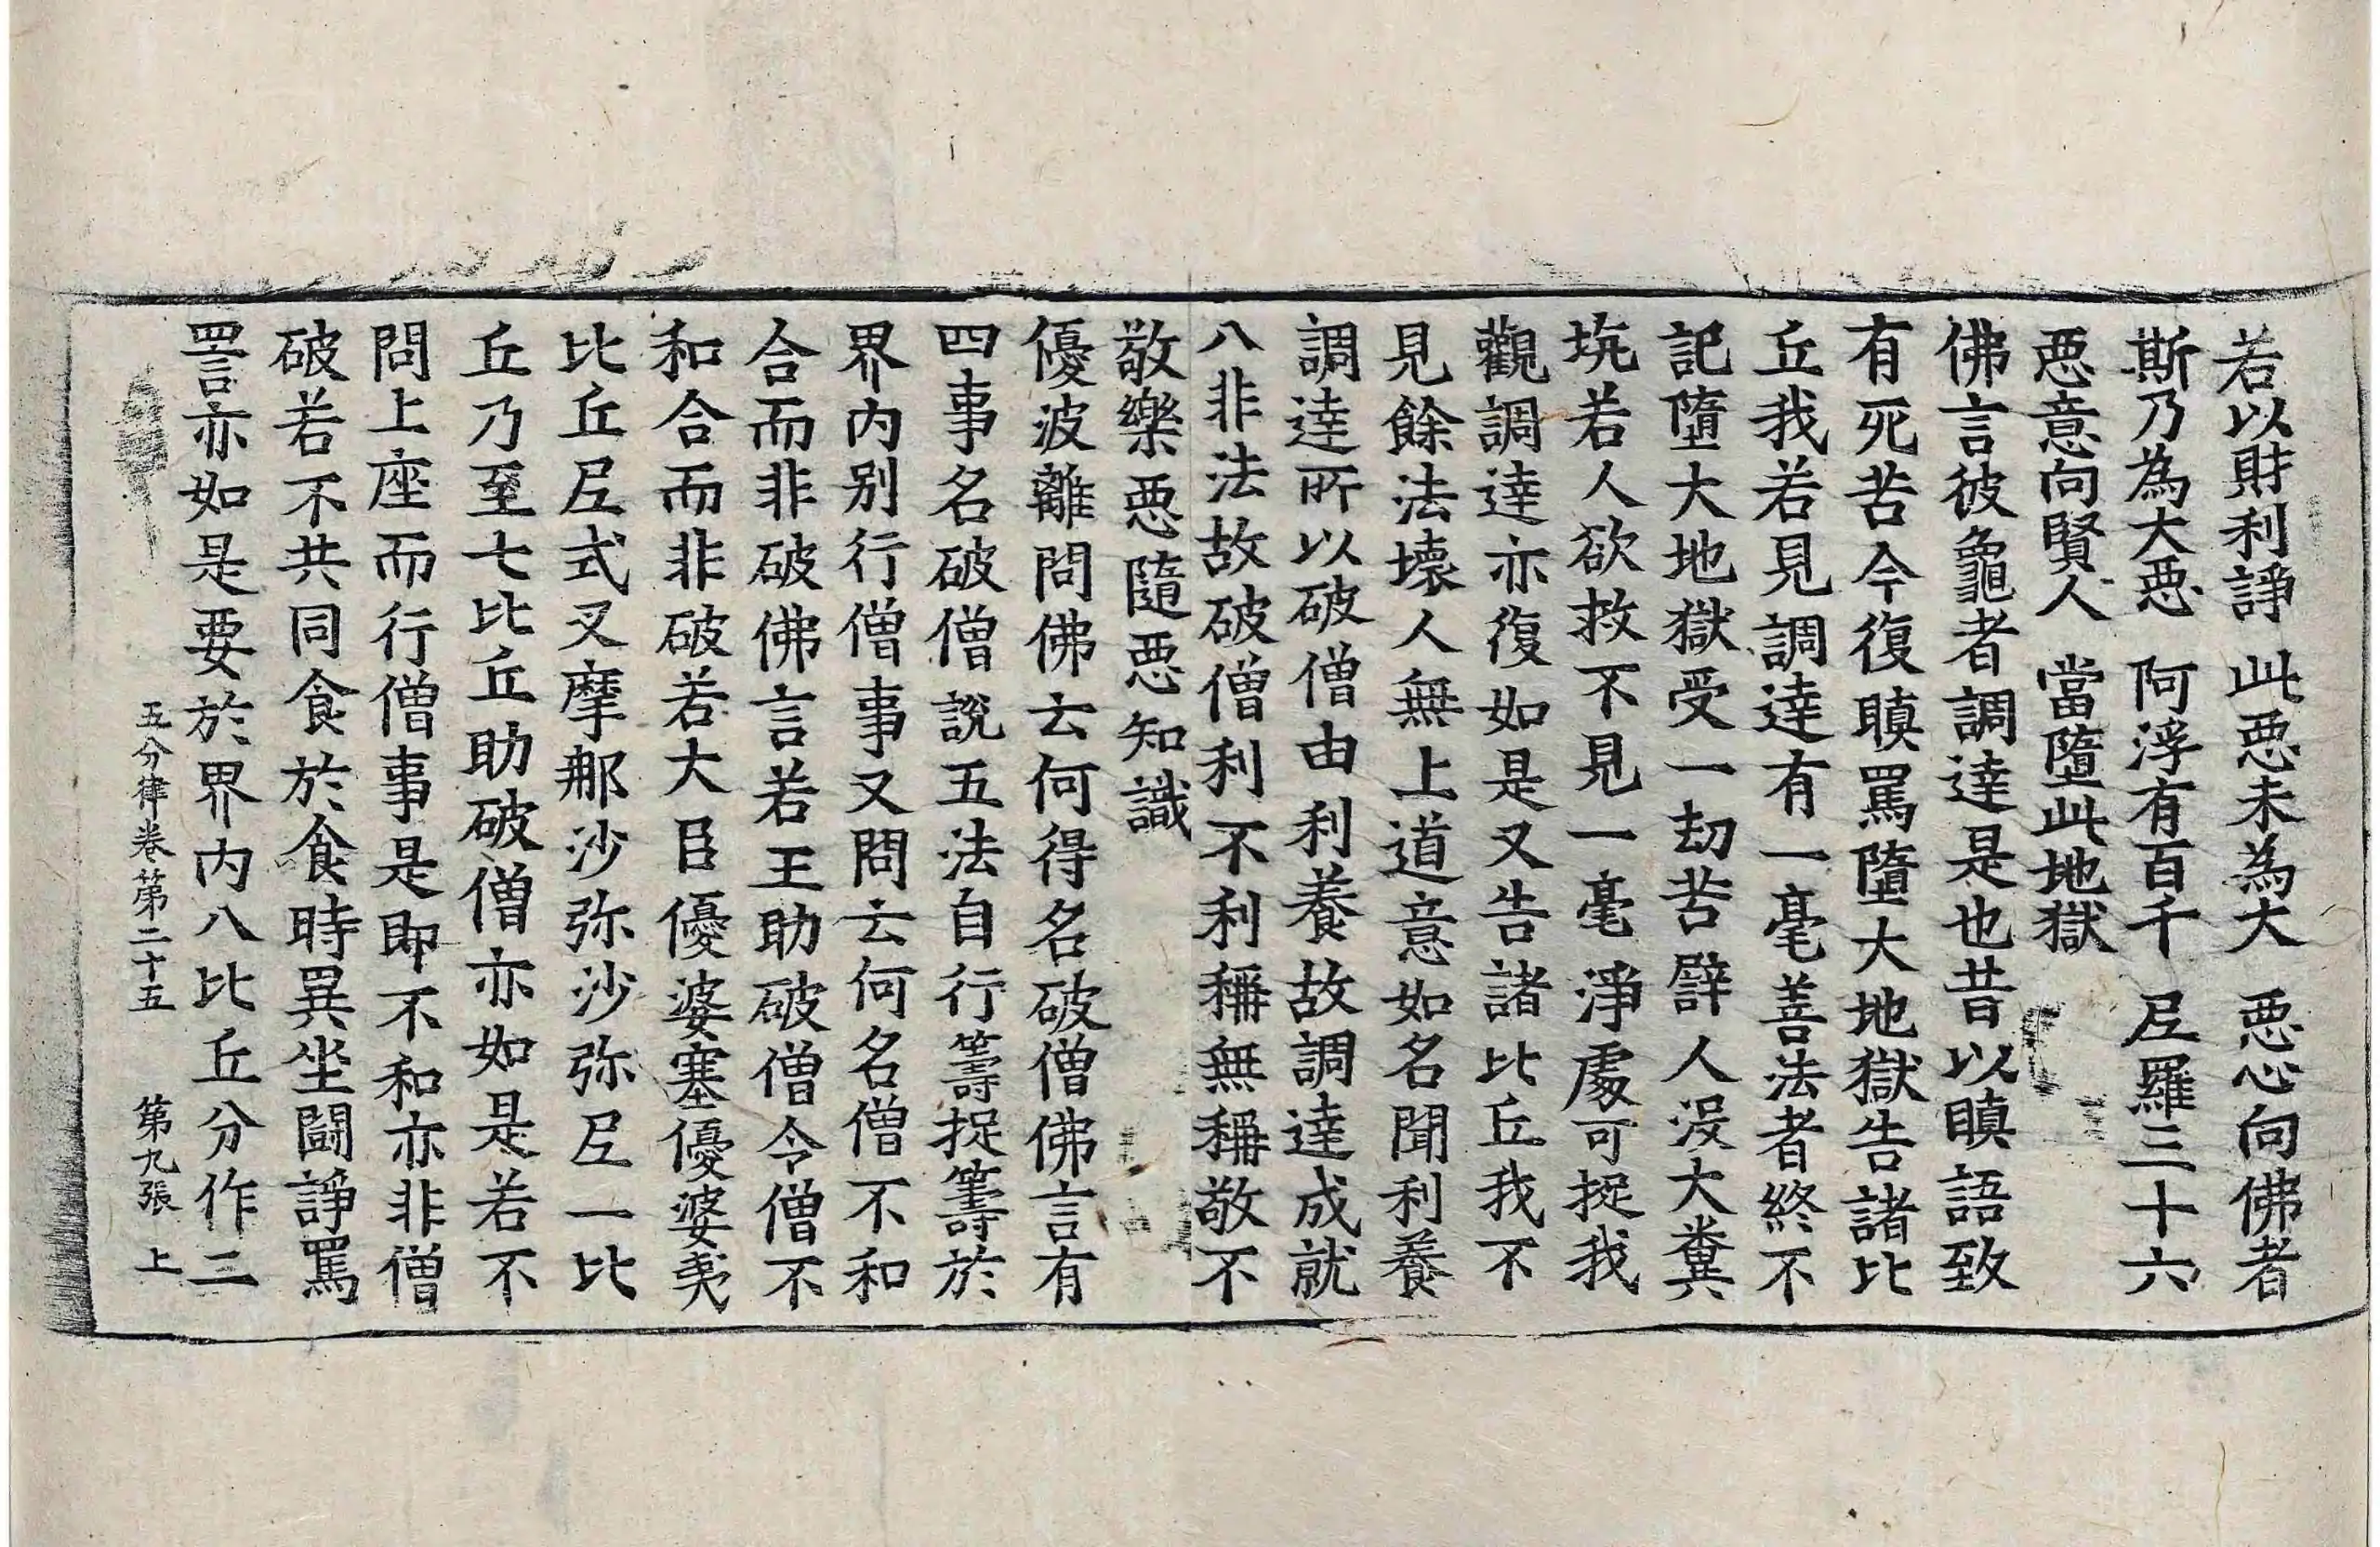 若以財利諍　此惡未為大　惡心向佛者
斯乃為大惡　阿浮有百千　尼羅三十六
惡意向賢人　當墮此地獄
佛言彼龜者調達是也昔以瞋語致
有死苦今復瞋罵墮大地獄告諸比
丘我若見調達有一毫善法者終不
記墮大地獄受一劫苦譬人沒大糞
坑若人欲救不見一毫淨處可捉我
觀調達亦復如是又告諸比丘我不
見餘法壞人無上道意如名聞利養
調達所以破僧由利養故調達成就
八非法故破僧利不利稱無稱敬不
敬樂惡隨惡知識
優波離問佛云何得名破僧佛言有
四事名破僧說五法自行籌捉籌於
界內別行僧事又問云何名僧不和
合而非破佛言若王助破僧令僧不
和合而非破若大臣優婆塞優婆夷
比丘尼式叉摩那沙弥沙弥尼一比
丘乃至七比丘助破僧亦如是若不
問上座而行僧事是即不和亦非僧
破若不共同食於食時異坐鬪諍罵
詈亦如是要於界內八比丘分作二
五分律卷第二十五　第九張　上